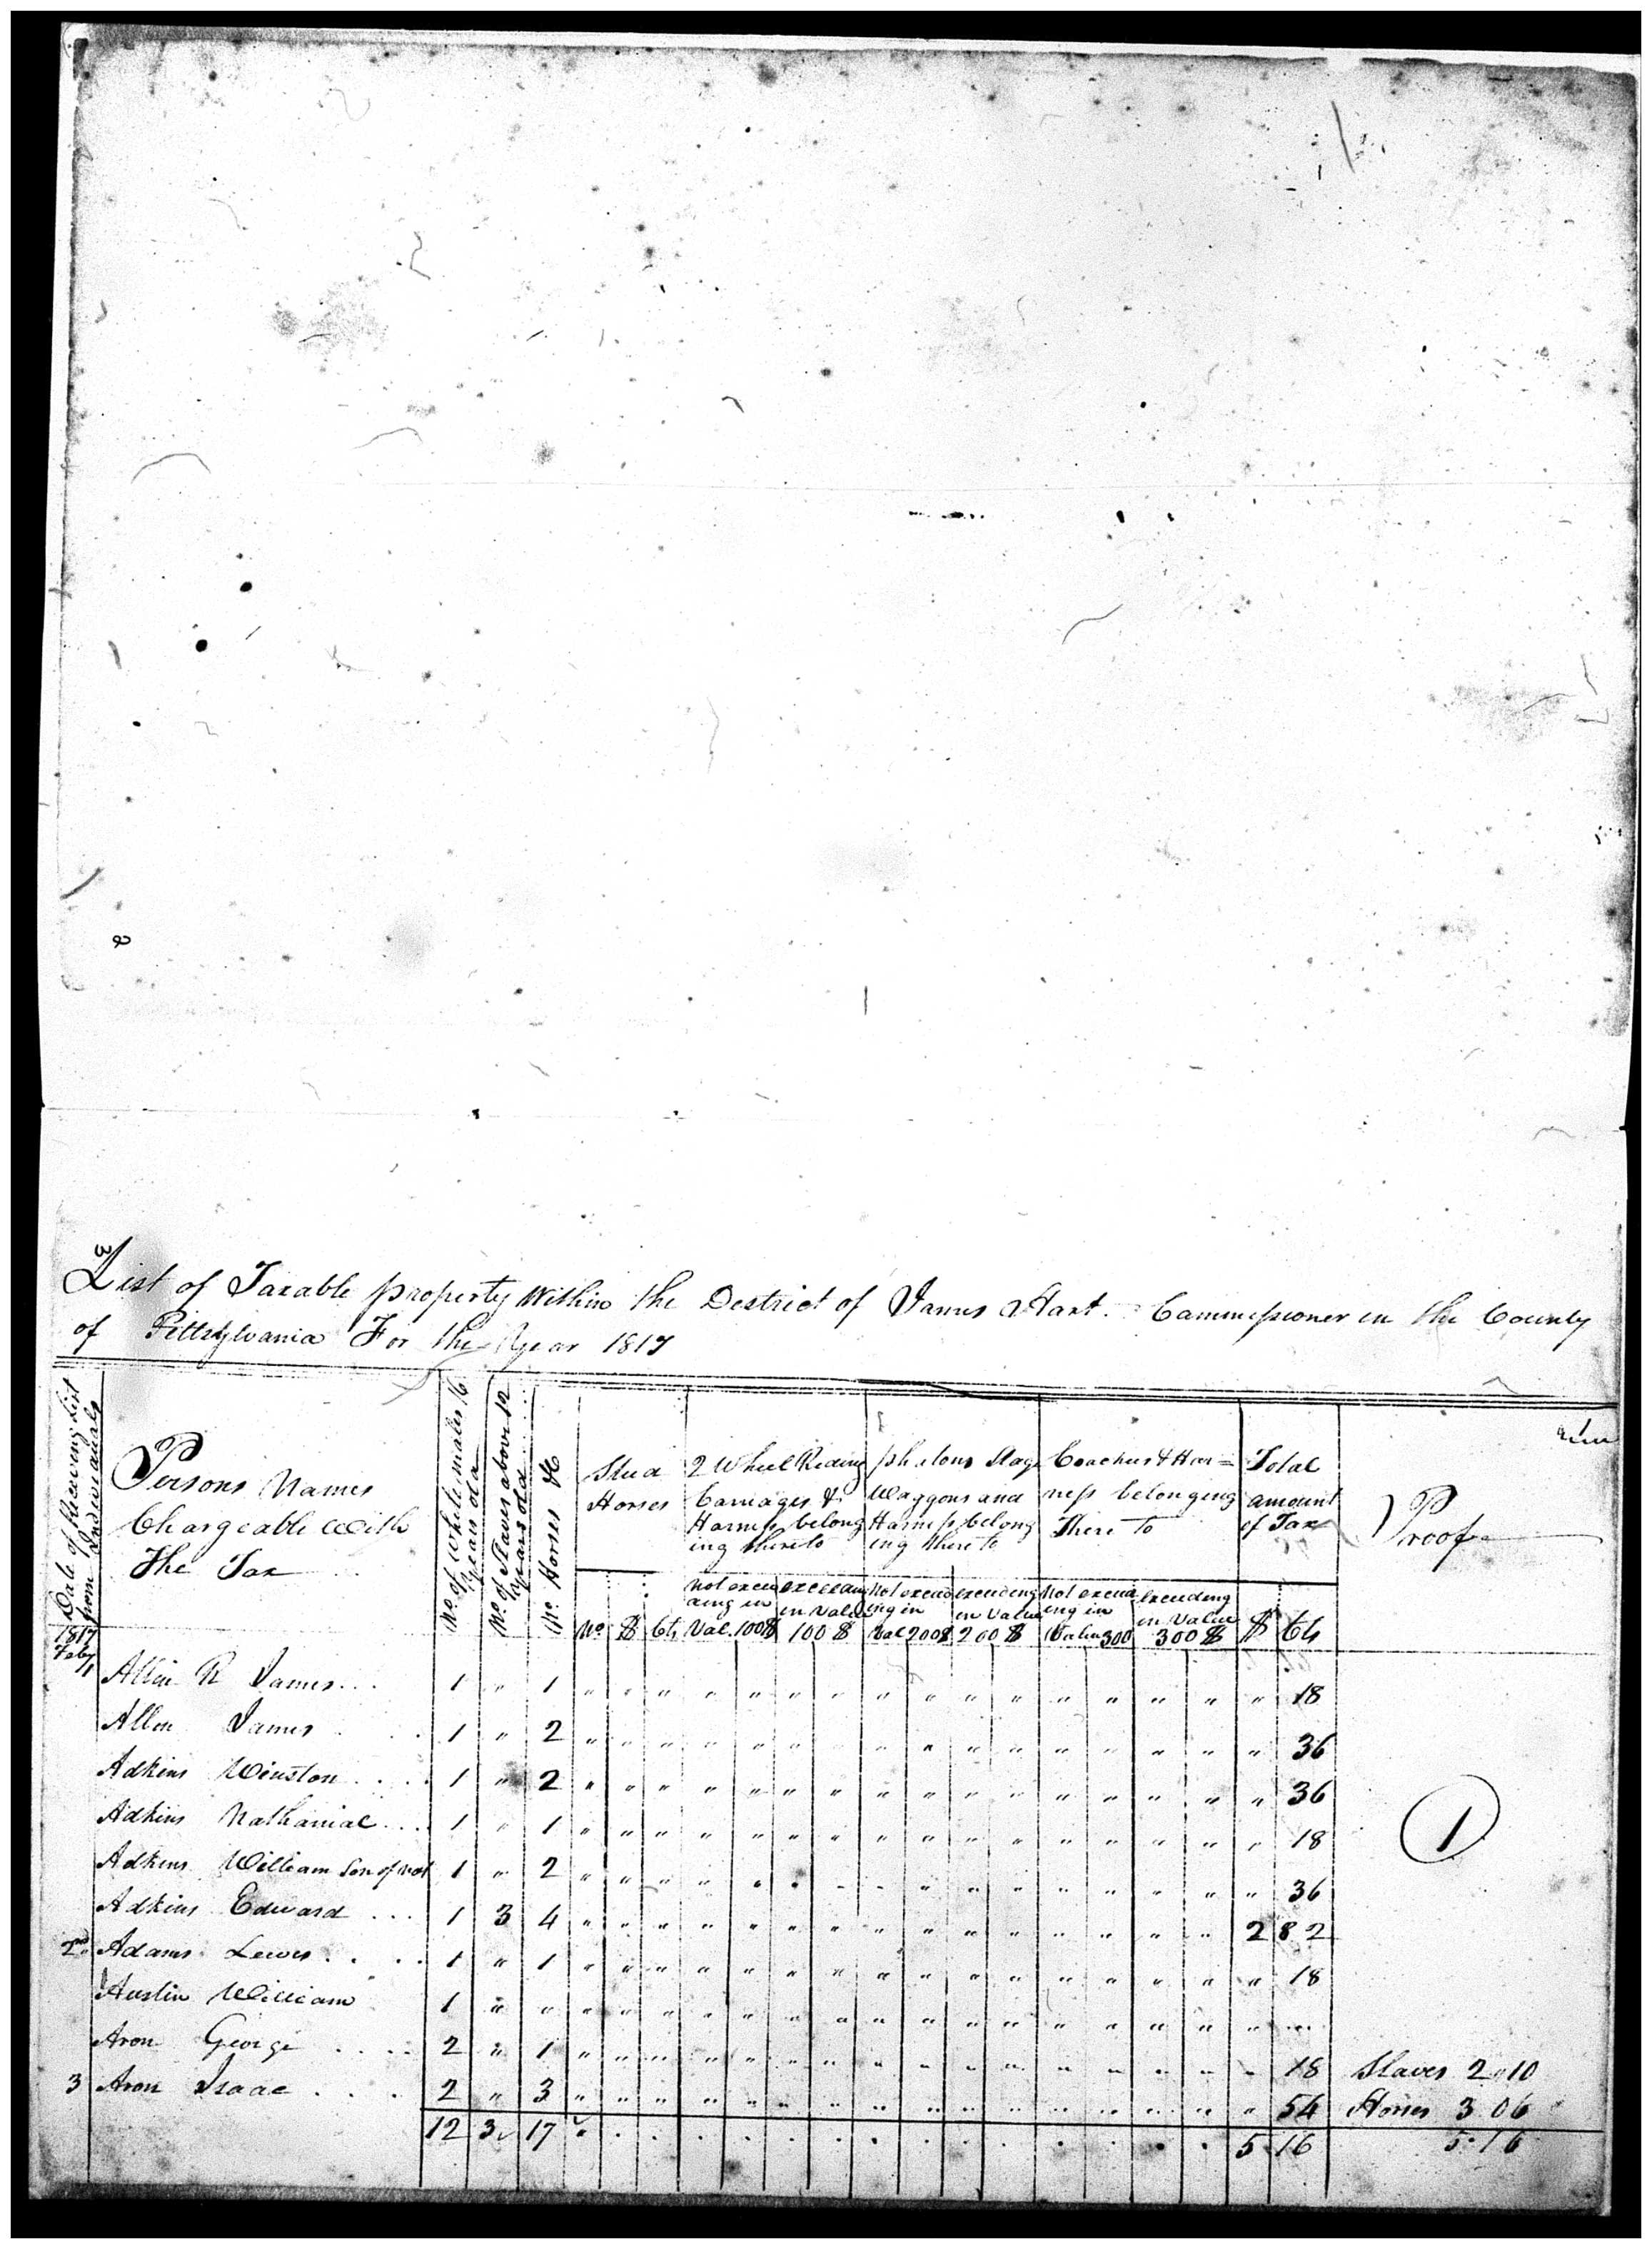 2
3
List of Taxable property Within the Destrict of James Hart. Commissioner in the County
of Pittsylvania For the Year 1817
Date of Receiving List from Individuals
Persons Names
Chargeable With
The Tax
No. of white males 16 years old
No. of Slaves above 12 years old
No. Horses &c
Stud
Horses
2 Wheel Riding
Carriages &
Harness belong
ing thereto
phetons Stage
Waggons and
Harness belong
ing thereto
Coaches & Har=
ness belonging
There To
Total
amount
of Tax
Proof
No. $ Cts
Not exceed
ing in
Val. 100$
exceeding
in Value
100 $
Not exceed
ing in
Val 200$
exceeding
in Value
200 $
Not exceed
ing in
Value 300
Exceeding
in Value
300 $
$ Cts
1817
Feby
1
Allin R James... 1 " 1 " " " " " " " " " " " " " " " " 18
Allen James . . 1 " 2 " " " " " " " " " " " " " " " " 36
Adkins Winston .... 1 " 2 " " " " " " " " " " " " " " " " 36
Adkins Nathanial ... 1 " 1 " " " " " " " " " " " " " " " " 18
1
Adkins William Son of Nat 1 " 2 " " " " " " " " " " " " " " " " 36
Adkins Edward ... 1 3 4 " " " " " " " " " " " " " " " 2 82
2nd Adams Lewis . . . . 1 " 1 " " " " " " " " " " " " " " " " 18
Austin William 1 " " " " " " " " " " " " " " " " " " ...
Aron George .... 2 " 1 " " " " " " " " " " " " " " " " 18 Slaves 2.10
3 Aron Isaac . . . . 2 " 3 " " " " " " " " " " " " " " " " 54 Horses 3 06
12 3 17 " . . . . . . . . . . . . . . 5 16 5.16